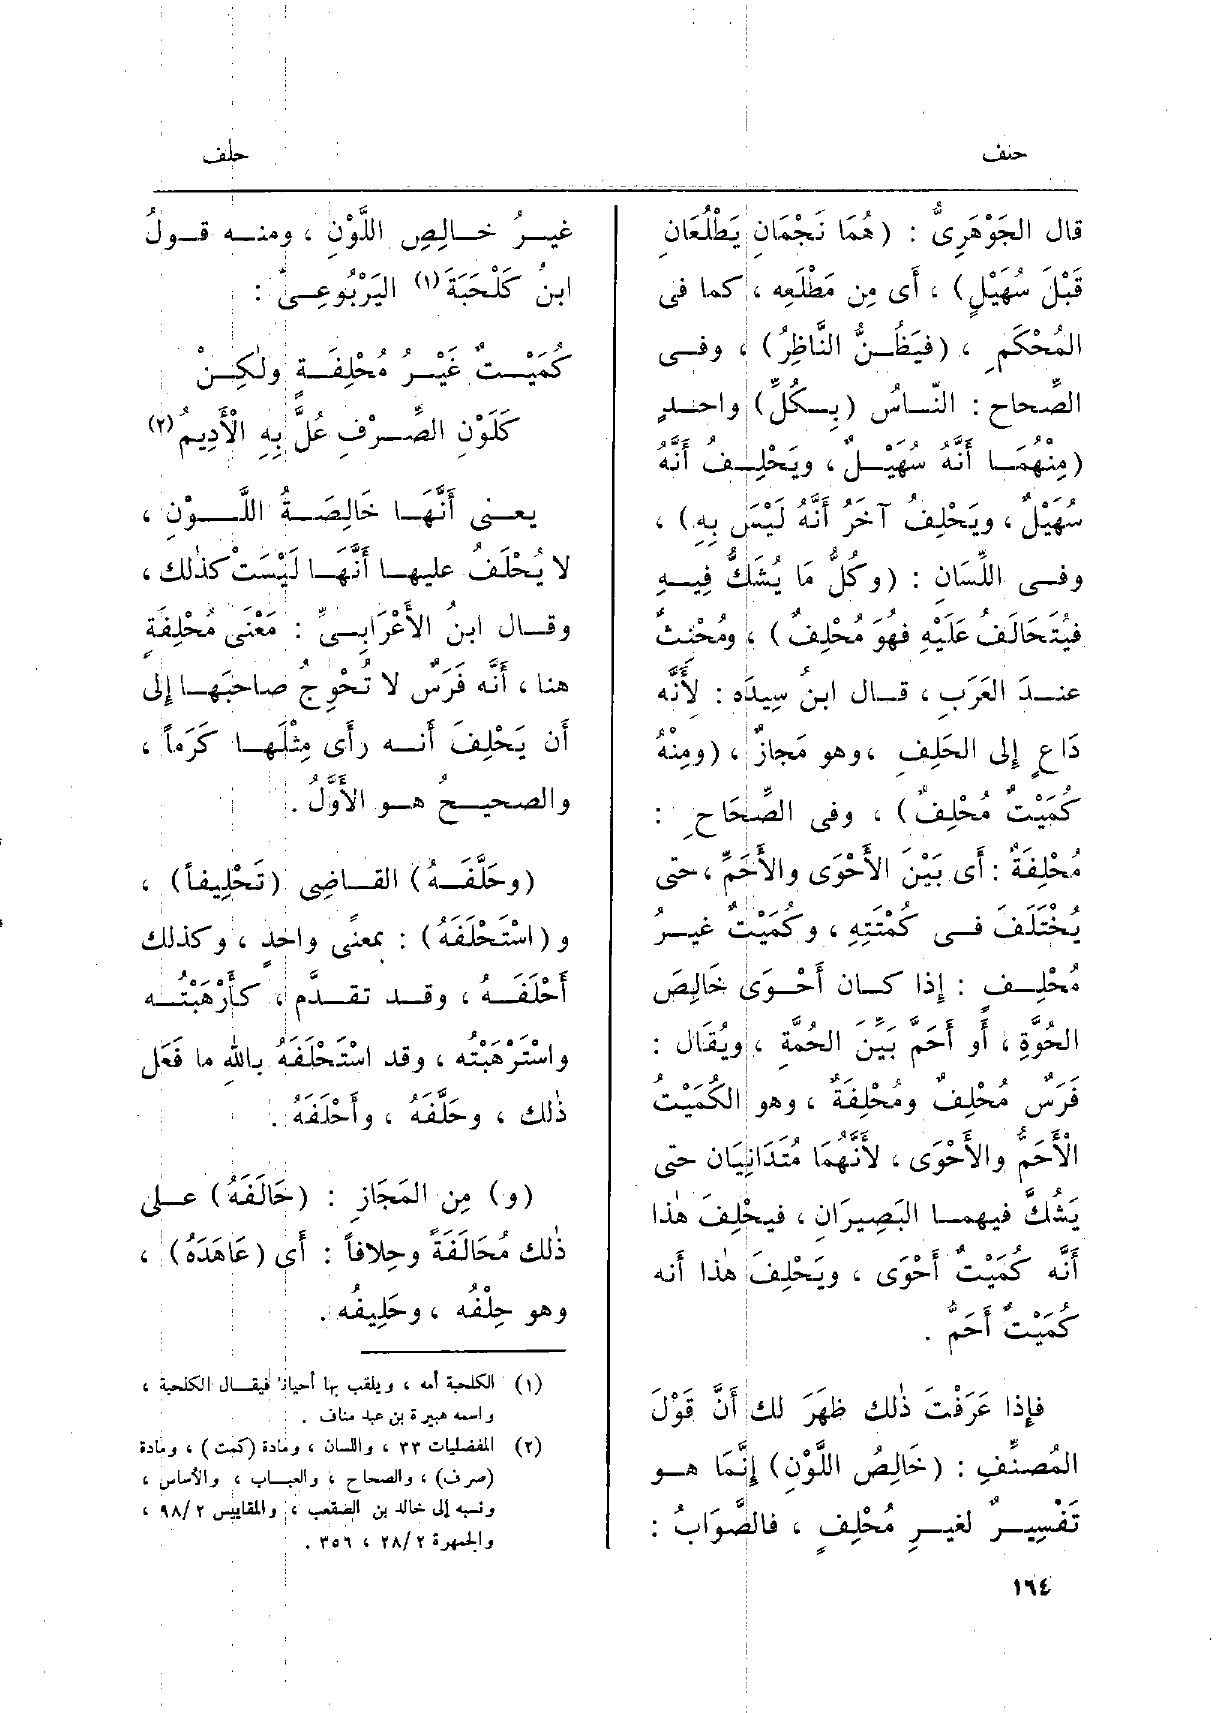 حنف
حلف
قال الجَوْهَرِىُّ : (هُمَا نَجْمَانِ يَطْلُعَانِ
قَبْلَ سُهَيْلٍ) ، أَى مِن مَطْلَعِه ، كما فى
المُحْكَمِ ، (فيَظُنُّ النَّاظِرُ) ، وفى
الصِّحاح : النّاسُ (بِكُلِّ) واحدٍ
(مِنْهُمَا أَنَّهُ سُهَيْلٌ ، ويَحْلِفُ أَنَّهُ
سُهَيْلٌ ، ويَحْلِفُ آخَرُ أَنَّهُ لَيْسَ بِهِ) ،
وفى اللِّسَانِ : (وكُلُّ مَا يُشَكُّ فِيهِ
فيُتَحَالَفُ عَلَيْهِ فهُوَ مُحْلِفٌ) ، ومُحْنِثٌ
عندَ العَرَبِ ، قال ابنُ سِيدَه : لأَنَّه
دَاعٍ إِلى الحَلِفِ ، وهو مَجازٌ ، (ومِنْهُ
كُمَيْتٌ مُحْلِفٌ) ، وفى الصِّحَاحِ :
مُحْلِفَةٌ : أَى بَيْنَ الأَحْوَى والأَحَمِّ ، حتى
يُخْتَلَفَ فى كُمْتَتِهِ ، وكُمَيْتٌ غيرُ
مُحْلِفٍ : إِذا كان أَحْوَى خَالِصَ
الحُوَّةِ ، أَو أَحَمَّ بَيِّنَ الحُمَّةِ ، ويُقَال :
فَرَسٌ مُحْلِفٌ ومُحْلِفَةٌ ، وهو الكُمَيْتُ
الْأَحَمُّ والأَحْوَى ، لأَنَّهُمَا مُتَدَانِيَان حتى
يَشُكَّ فيهما البَصِيرَانِ ، فيحْلِفَ هٰذا
أَنَّه كُمَيْتٌ أَحْوَى ، ويَحْلِفَ هٰذا أنه
كُمَيْتٌ أَحَمُّ .
فإِذا عَرَفْتَ ذٰلك ظهَرَ لك أَنَّ قَوْلَ
المُصنِّفِ : (خَالِصُ اللَّوْنِ) إِنَّمَا هو
تَفْسِيرٌ لغيرِ مُحْلِفٍ ، فالصَّوَابُ :
غيرُ خالِصِ اللَّوْنِ ، ومنه قولُ
ابنُ كَلْحَبَةَ (١) اليَرْبُوعِىِّ :
كُمَيْتٌ غَيْرُ مُحْلِفَةٍ ولٰكِنْ
كَلَوْنِ الصِّرْفِ عُلَّ بِهِ الْأَدِيمُ (٢)
يعنى أَنَّهَا خَالِصَةُ اللَّوْنِ ،
لا يُحْلَفُ عليها أَنَّهَا لَيْسَتْ كذٰلك ،
وقال ابنُ الأَعْرَابِىِّ : مَعْنَى مُحْلِفَةٍ
هنا ، أَنَّه فَرَسٌ لا تُحْوِجُ صاحبَهَا إِلى
أَن يَحْلِفَ أَنه رأَى مِثْلَها كَرَماً ،
والصحيحُ هو الأَوَّلُ .
(وحَلَّفَهُ) القاضِى (تَحْلِيفاً) ،
و (اسْتَحْلَفَهُ) : بمعنًى واحدٍ ، وكذلك
أَحْلَفَهُ ، وقد تقدَّم ، كأَرْهَبْتُه
واسْتَرْهَبْتُه ، وقد اسْتَحْلَفَهُ باللهِ ما فَعَل
ذٰلك ، وحَلَّفَهُ ، وأَحْلَفَهُ .
(و) مِن المَجَازِ : (حَالَفَهُ) على
ذٰلك مُحَالَفَةً وحِلافاً : أَى (عَاهَدَهُ) ،
وهو حِلْفُه ، وحَلِيفُه .
(١) الكلحبة أمه ، ويلقب بها أحيانا فيقال الكلحبة ،
واسمه هبيرة بن عبد مناف .
(٢) المفضليات ٣٣ ، واللسان ، ومادة (كمت) ، ومادة
(صرف) ، والصحاح ، والعباب ، والأساس ،
ونسبه إلى خالد بن الصقعب ، والمقاييس ٩٨/٢ ،
والجمهرة ٢٨/٢ ، ٣٥٦ .
١٦٤